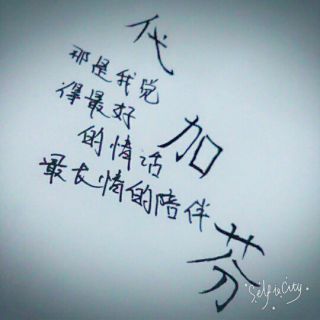 代加芬
那是我说
得最好
的情话
最友情的陪伴
Selfie City